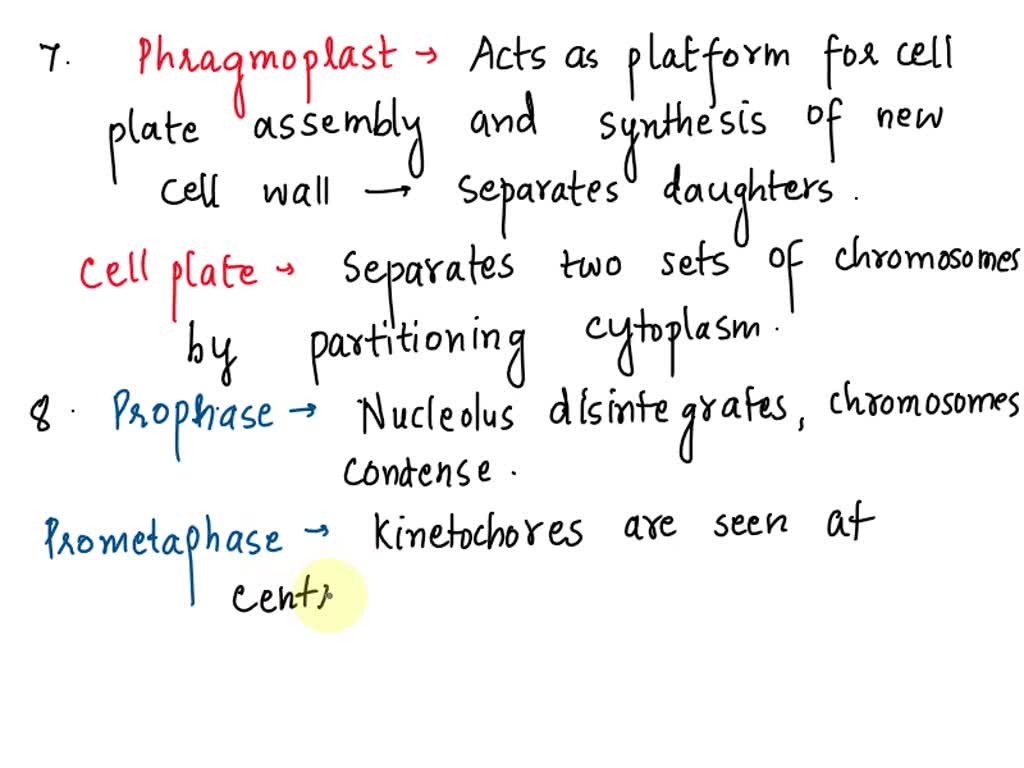 7. Phragmoplast → Acts as platform for cell
plate assembly and synthesis of new
cell wall → separates daughters.
Cell plate → separates two sets of chromosomes
by partitioning cytoplasm.
8. Prophase → Nucleolus disintegrates, chromosomes
condense.
Prometaphase → Kinetochores are seen at
centr